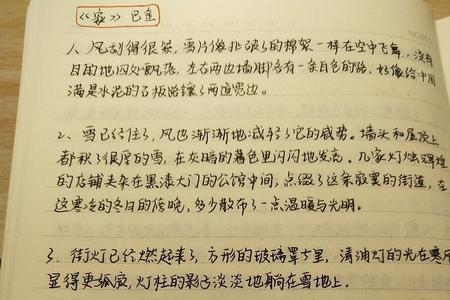 《家》 巴金
1、风刮得很紧，雪片像扯破了的棉絮一样在空中飞舞，没有
目的地四处飘落。左右两边墙脚各有一条白色的路，好像给中间
满是水泥的石板路镶了两道宽边。
2、雪已经住了，风也渐渐地减轻了它的威势。墙头和屋顶上
都积了很厚的雪，在灰暗的暮色里闪闪地发亮。几家灯烛辉煌
的店铺夹杂在黑漆大门的公馆中间，点缀了这条寂寞的街道，在
这寒冷的冬日的傍晚，多少散布了一点温暖与光明。
3、街灯已经燃起来了，方形的玻璃罩子里，清油灯的光在寒风
显得更孤寂，灯柱的影子淡淡地躺在雪地上。